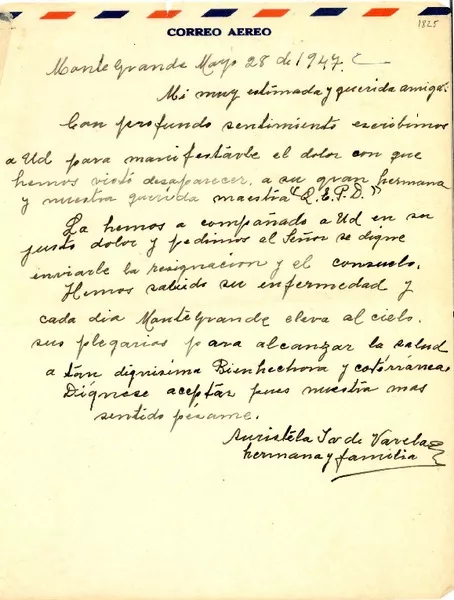 1825
CORREO AEREO
Monte Grande Mayo 28 de 1947.
Mi muy estimada y querida amiga:
Con profundo sentimiento escribimos
a Ud para manifestarle el dolor con que
hemos visto desaparecer, a su gran hermana
y nuestra querida maestra "Q.E.P.D."
La hemos acompañado a Ud en su
justo dolor y pedimos al Señor se digne
enviarle la resignacion y el consuelo.
Hemos sabido su enfermedad y
cada dia Monte Grande eleva al cielo
sus plegarias para alcanzar la salud
a tan dignisima Bienhechora y coterránea
Dígnese aceptar pues nuestro mas
sentido pésame.
Auristela de Varela
hermana y familia